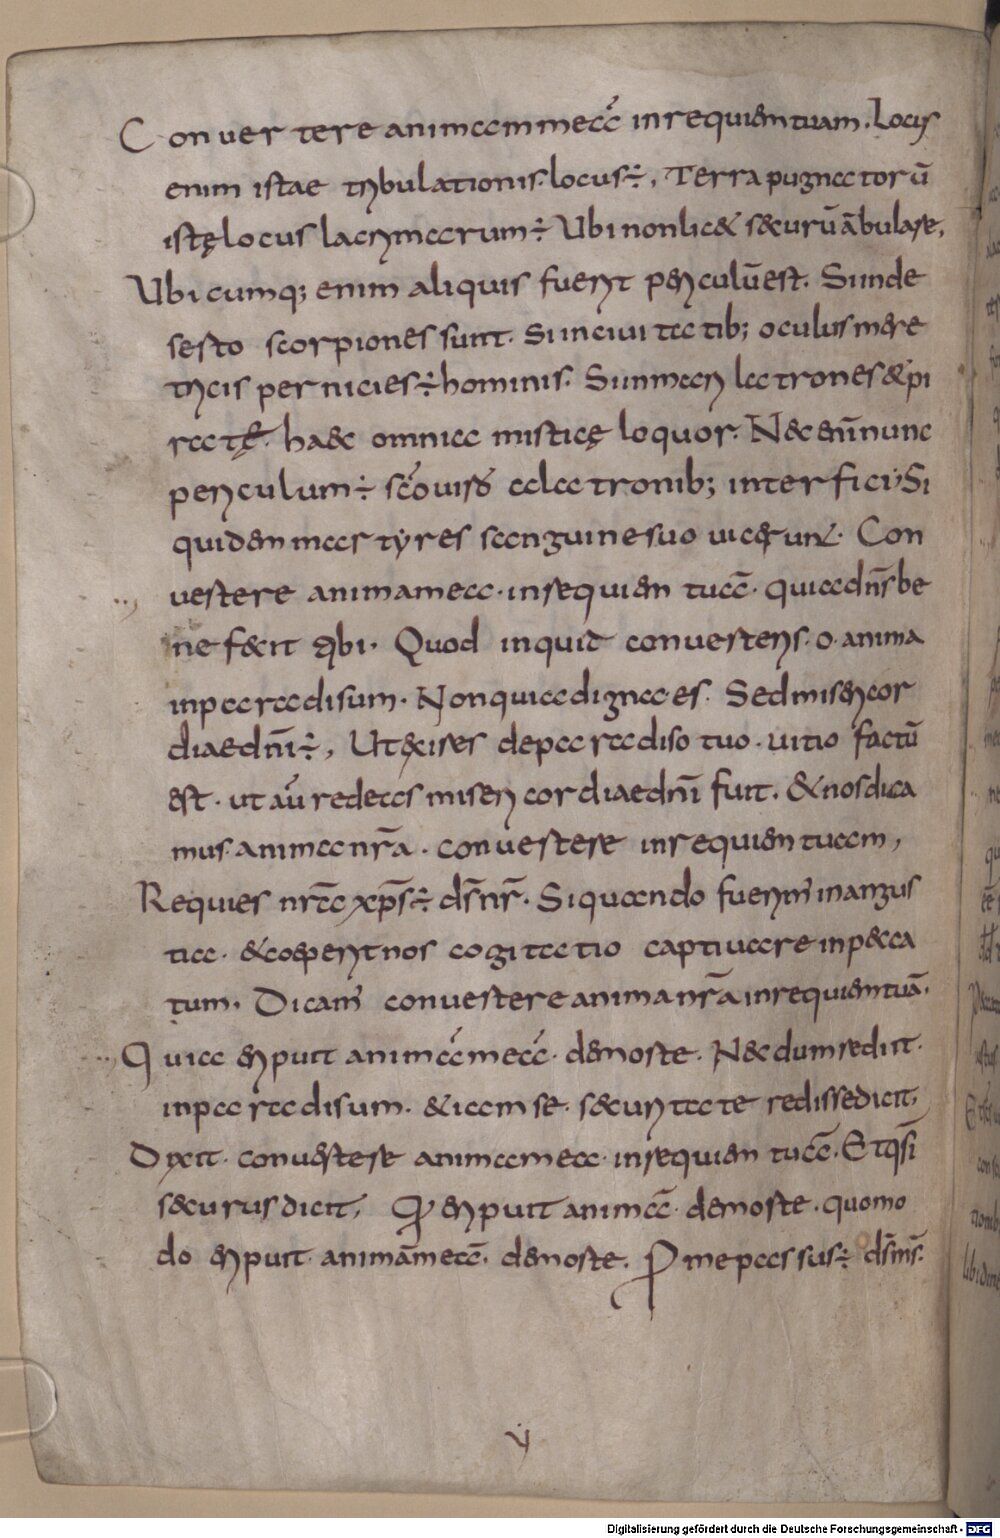 Conuertere animam meā in requiem tuam. Locus
enim istae tribulationis locus÷, Terra pugnatorū
istę locus lacrymarum÷ Ubi non lic& s&curū ābulare,
Ubicumq; enim aliquis fuerit periculū est. Si in de
serto scorpiones sunt. Si in ciuitatib; oculus mere
tricis pernicies÷ hominis. Si in mari latrones & pi
ratę. haec omnia misticę loquor. Nec enī nunc
periculum÷ sc̄o uiro a latronib; interfici. Si
quidem martyres sanguine suo uicerunt. Con
uertere anima mea. in requiem tuā. quia dn̄s be
nefecit tibi. Quod inquit conuerteris. o anima
in paradisum. Non quia digna es. Sed misericor
diae dn̄i÷, Ut exires de paradiso tuo. uitio factū
est. ut aū redeas misericordiae dn̄i fuit. & nos dica
mus. anima nr̄a. conuertere in requiem tuam,
Requies nr̄a xp̄s÷ ds̄ nr̄. Si quando fuerim' in angus
tia. & coeperit nos cogitatio captiuare in pecca
tum. Dicam' conuertere anima nr̄a in requiem tuā.
Quia eripuit animā meā. de morte. Nec dum rediit
in paradisum. & iam se. securitate redisse dicit,
Dixit. conuertere anima mea. in requiem tuā. Et qs̄i
securus dicit, Q' eripuit animā. de morte. quomo
do eripuit. animā meā. de morte. P me passus÷ ds̄ ms̄.
Digitalisierung gefördert durch die Deutsche Forschungsgemeinschaft - DFG